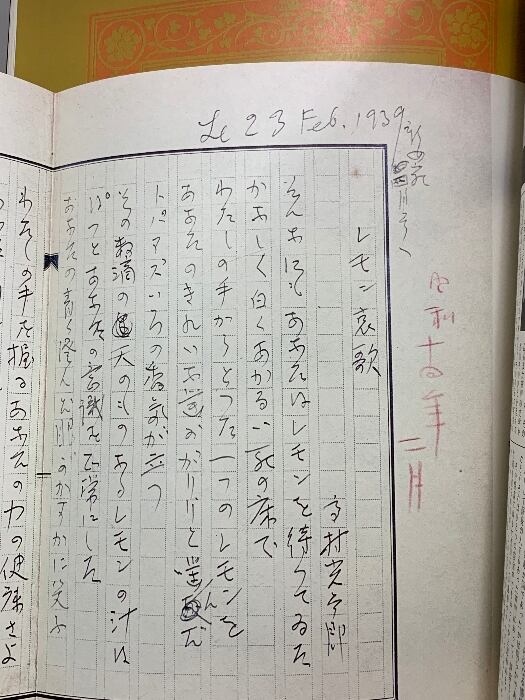 Le 23 Feb. 1939
昭和十四年二月
レモン哀歌
高村光太郎
そんなにもあなたはレモンを待つてゐた
かなしく白くあかるい死の床で
わたしの手からとつた一つのレモンを
あなたのきれいな歯ががりりと噛んだ
トパアズいろの香気が立つ
その数滴の天のものなるレモンの汁は
ぱつとあなたの意識を正常にした
あなたの青く澄んだ眼がかすかに笑ふ
わたしの手を握るあなたの力の健康さよ